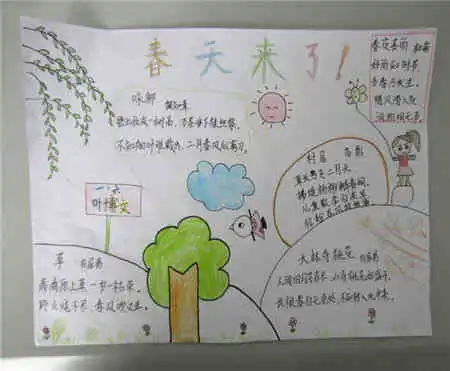 春天来了！
咏柳 贺知章
碧玉妆成一树高，万条垂下绿丝绦。
不知细叶谁裁出，二月春风似剪刀。
春夜喜雨 杜甫
好雨知时节，
当春乃发生。
随风潜入夜，
润物细无声
村居 高鼎
草长莺飞二月天，
拂堤杨柳醉春烟。
儿童散学归来早，
忙趁东风放纸鸢。
一·六
叶 文
草 白居易
离离原上草，一岁一枯荣。
野火烧不尽，春风吹又生。
大林寺桃花 白居易
人间四月芳菲尽，山寺桃花始盛开。
长恨春归无觅处，不知转入此中来。